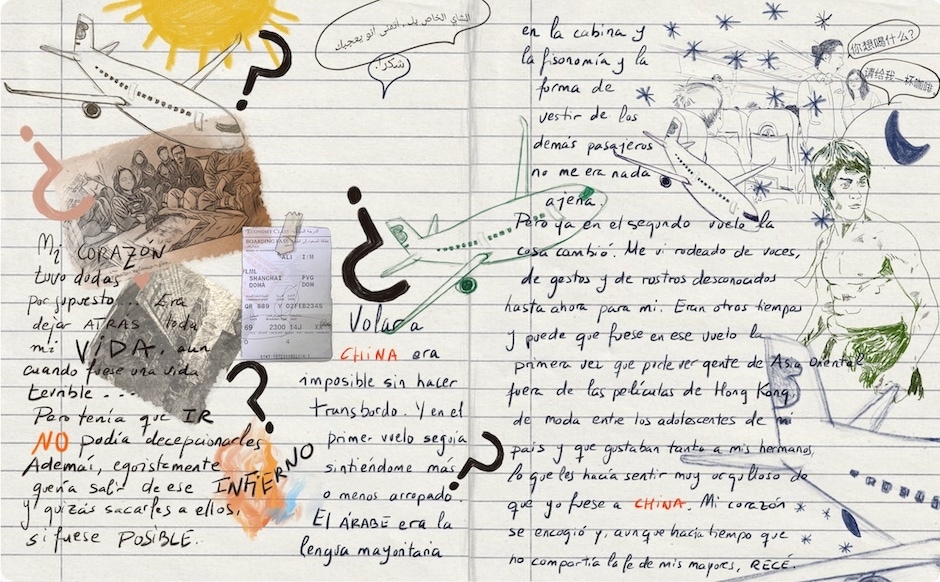 الشاي الخاص بك، اتمنى انو يعجبك
شكرا.
Mi CORAZÓN
tuvo dudas
por supuesto... Era
dejar ATRAS toda
mi VIDA, aun
cuando fuese una vida
terrible...
Pero tenía que IR
NO podía decepcionarles
Además, egoistamente
quería salir de ese INFIERNO
y quizás sacarles a ellos,
si fuese POSIBLE.
ECONOMY CLASS
BOARDING PASS
ALI
SHANGHAI PVG
DOHA DOH
QR 889 Y 02FEB2345
69 2300 14J
Volar a
CHINA era
imposible sin hacer
transbordo. Y en el
primer vuelo seguía
sintiéndome más
o menos arropado.
El ÁRABE era la
lengua mayoritaria
en la cabina y
la fisonomía y la
forma de
vestir de los
demás pasajeros
no me era nada
ajena.
Pero ya en el segundo vuelo la
cosa cambió. Me vi rodeado de voces,
de gestos y de rostros desconocidos
hasta ahora para mi. Eran otros tiempos
y puede que fuese en ese vuelo la
primera vez que pude ver gente de Asia Oriental
fuera de las películas de Hong Kong,
de moda entre los adolescentes de mi
país y que gustaban tanto a mis hermanos,
lo que les hacía sentir muy orgulloso de
que yo fuese a CHINA. Mi corazón
se encogió y, aunque hacía tiempo que
no compartía la fe de mis mayores, RECÉ.
你想喝什么?
请给我一杯咖啡.